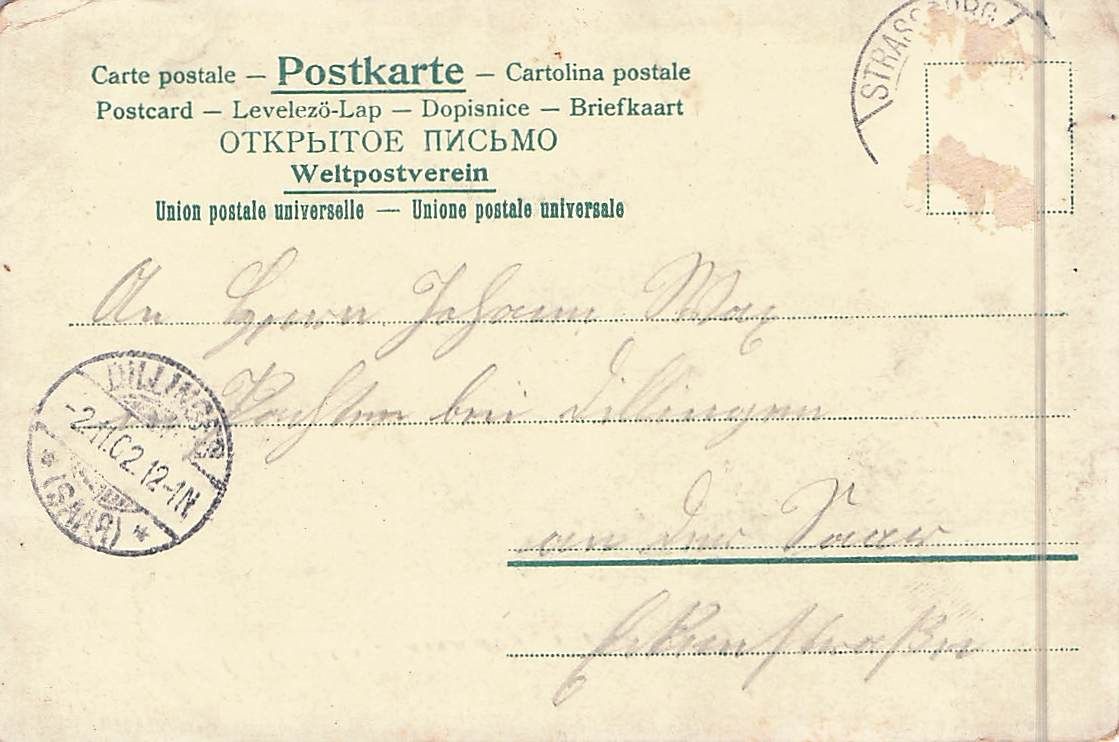 Carte postale — Postkarte — Cartolina postale
Postcard — Levelező-Lap — Dopisnice — Briefkaart
ОТКРЫТОЕ ПИСЬМО
Weltpostverein
Union postale universelle — Unione postale universale
STRASSBURG
An Herrn Johann Max
Pachten bei Dillingen
an der Saar
DILLINGEN
-2.11.02.12-1N
* (SAAR) *